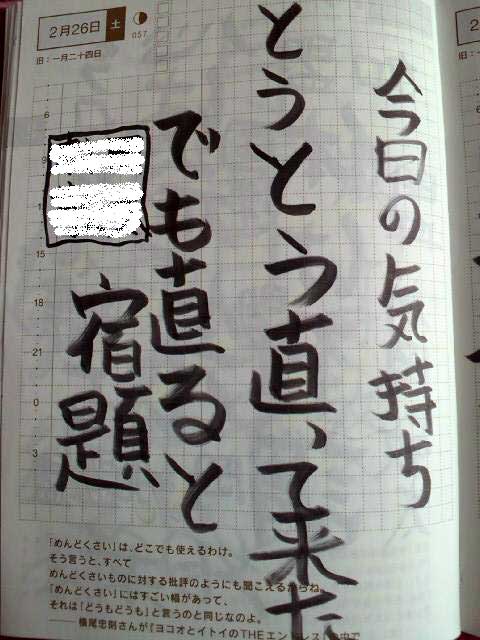 2月26日 土
057
旧:一月二十四日
今日の気持ち
とうとう直って来た
でも直ると
宿題
6
15
18
21
0
3
「めんどくさい」は、どこでも使えるわけ。
そう言うと、すべて
めんどくさいものに対する批評のようにも聞こえるからね。
「めんどくさい」にはすごい幅があって、
それは「どうもどうも」と言うのと同じなのよ。
——横尾忠則さんが『ヨコオとイトイのTHEエンドレス』の中で
2